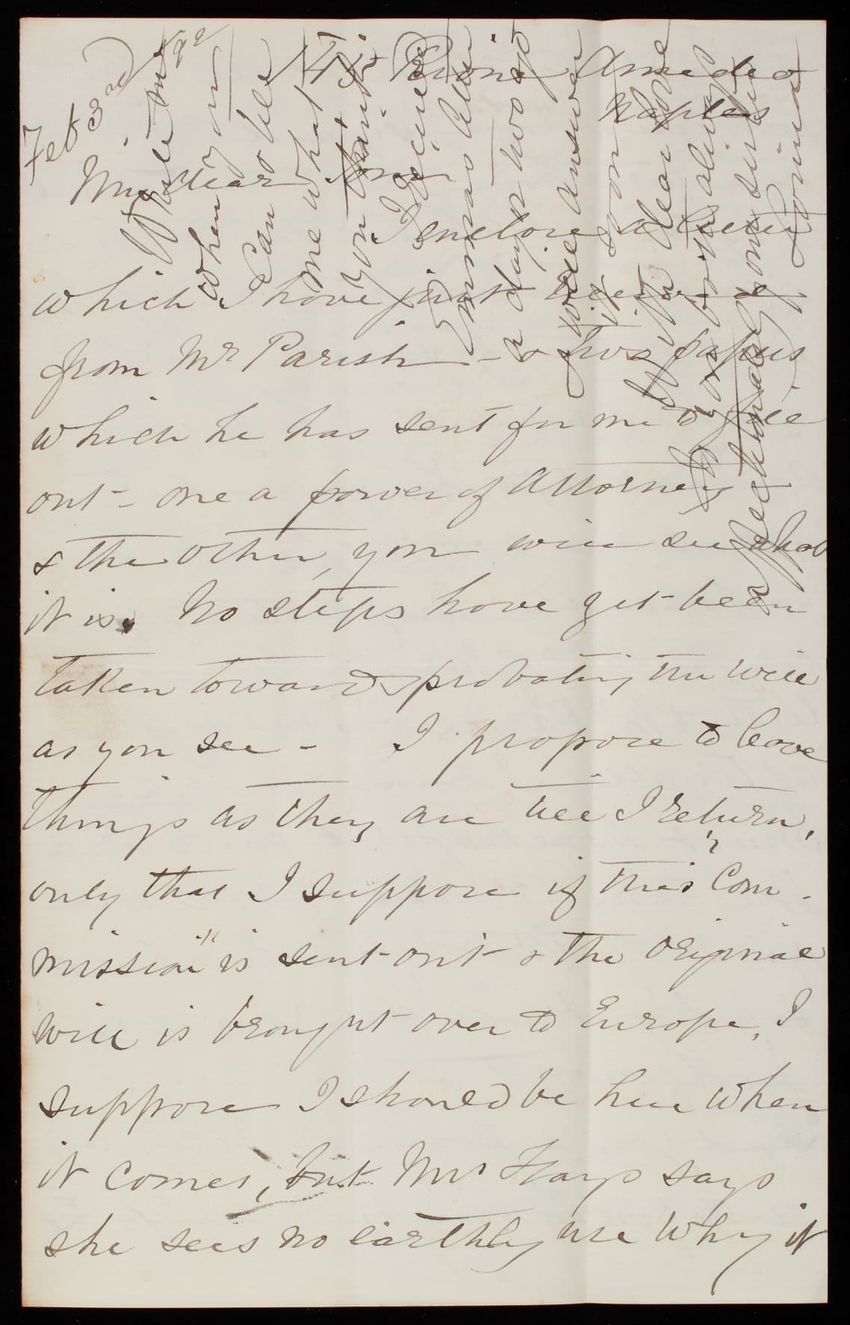 Feb 3rd
Naples
My dear Tom
I enclose a letter
which I have just received
from Mr Parish - & two papers
which he has sent for me to file
out - one a power of Attorney
& the other, you will see what
it is. No steps have yet been
taken towards probating the will
as you see - I propose to leave
things as they are till I return,
only that I suppose if this "Com-
mission" is sent out & the original
will is brought over to Europe, I
suppose I should be here when
it comes, but Mrs Hays says
she sees no earthly use why it
Write me
when you
can & tell
me what
you think
I received
Emma's letter
a day or two ago
& will answer
it soon
With dear love
to you both always
affectionately your sister
Louisa